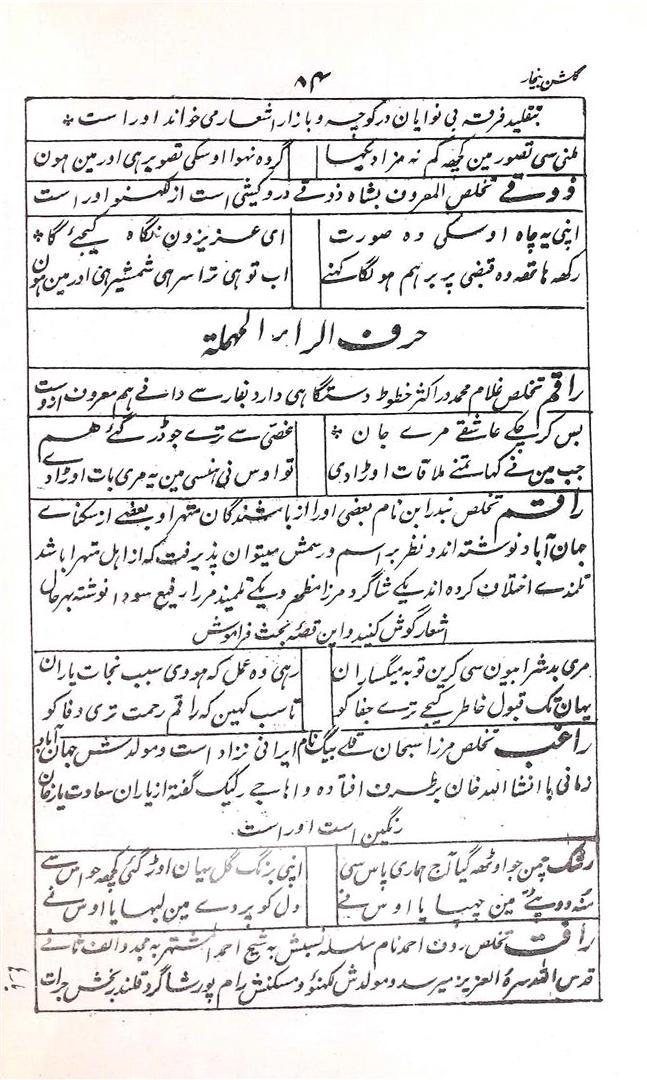 گلشن بیخار
۸۴
بتقلید فرقہ بی نوایان در کوچہ و بازار اشعار می خواند اوراست *
ملنی سی تصور مین کچھ کم نہ مزا دیکھا گروہ نہوا اوسکی تصویر ہی اور مین ہون
ذوقے تخلص المعروف بشاہ ذوقے درویشی است از لکھنؤ اوراست
اپنی یہ چاہ اوسکی وہ صورت ای عزیزون نگاہ کیجئے گا *
رکھہ ہاتھہ وہ قبضی پر برہم ہو لگا کہنے اب تو ہی ترا سر ہی شمشیر ہی اور مین ہون
حرف الراء المہملۃ
راقم تخلص غلام محمد در اکثر خطوط دستگاہی دارد بفارسے دانے ہم معروف ازوست
بس کر چکے عاشقے مرے جان * غصّی سے ترے جو ڈر گئے ہم
جب مین نے کہا تمنے ملاقات اوڑا دی تو اوس نی ہنسی مین یہ مری بات اوڑا دے
راقم تخلص بندرابن نام بعضی اورا از باشندگان متہرا و بعضے از سکناے
جہان آباد نوشتہ اند و نظر بر اسم و رسمش میتوان پذیرفت کہ از اہل متہرا باشد
تلمذے اختلاف کردہ اند یکے شاگرد مرزا مظہر و یکے تلمیذ مرزا رفیع سودا نوشتہ بہر حال
اشعار گوش کنید و این قصۂ بحث فراموش
مری بد شرابیون سی کرین توبہ میگساران رہی وہ عمل کہ ہووی سبب نجات یاران
یہان تک قبول خاطر کیجے ترے جفا کو تا سب کہین کہ راقم رحمت تری وفا کو
راغب تخلص مرزا سبحان قلے بیگ نام ایرانی نژاد است و مولدش جہان آباد
زمانی با انشا اللہ خان بر طرف افتادہ و اہاجے رکیک گفتہ از یاران سعادت یار خان
رنگین است اوراست
رشک چمن جو اوٹھہ گیا آج ہماری پاس سی اپنی برنگ گل یہان اوڑ گئی کچھہ حواس سے
منہ دوپٹے مین چہپایا اوس نے دل کو پردے مین لبھایا اوس نے
رافت تخلص روف احمد نام سلسلہ نسبش بہ شیخ احمد المشتہر بہ مجدد الف ثانے
قدس اللہ سرہ العزیز میرسد و مولدش لکھنؤ و مسکنش رام پور شاگرد قلندر بخش جرات